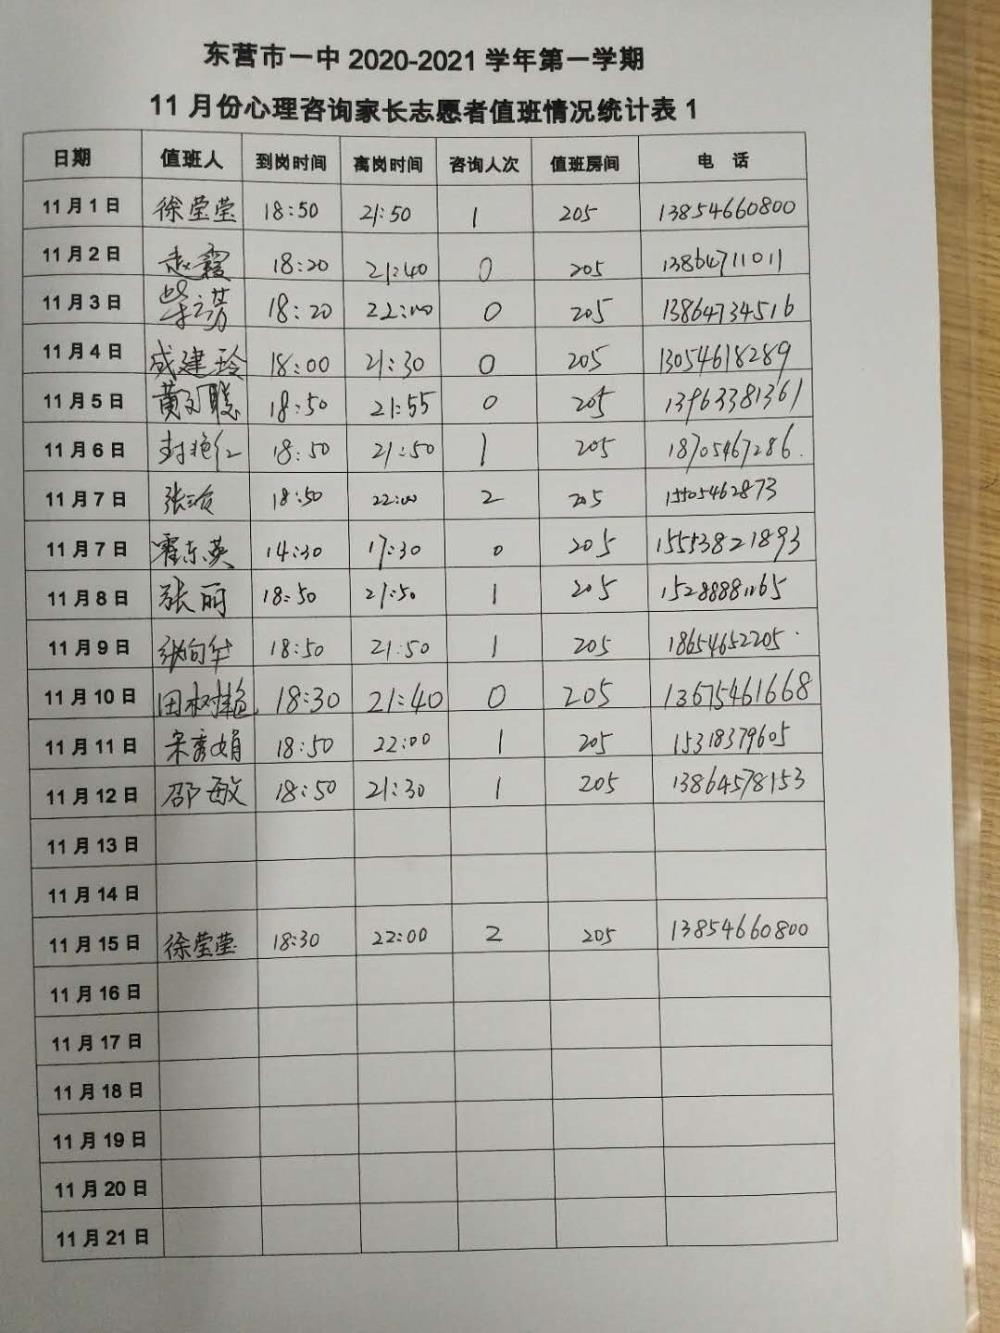 东营市一中 2020-2021 学年第一学期
11 月份心理咨询家长志愿者值班情况统计表 1
日期 值班人 到岗时间 离岗时间 咨询人次 值班房间 电 话
11 月 1 日 徐莹莹 18:50 21:50 1 205 13854660800
11 月 2 日 赵霞 18:20 21:40 0 205 13864711011
11 月 3 日 18:20 22:00 0 205 13864734516
11 月 4 日 成建玲 18:00 21:30 0 205 13054618289
11 月 5 日 黄 聪 18:50 21:55 0 205 13963381361
11 月 6 日 封艳红 18:50 21:50 1 205 18705467286
11 月 7 日 张 18:50 22:00 2 205 15505462873
11 月 7 日 霍东英 14:30 17:30 0 205 15553821893
11 月 8 日 张丽 18:50 21:50 1 205 15288881165
11 月 9 日 向华 18:50 21:50 1 205 18654652205
11 月 10 日 田树艳 18:30 21:40 0 205 13675461668
11 月 11 日 宋秀娟 18:50 22:00 1 205 15318379605
11 月 12 日 邵敏 18:50 21:30 1 205 13864578153
11 月 13 日
11 月 14 日
11 月 15 日 徐莹莹 18:30 22:00 2 205 13854660800
11 月 16 日
11 月 17 日
11 月 18 日
11 月 19 日
11 月 20 日
11 月 21 日